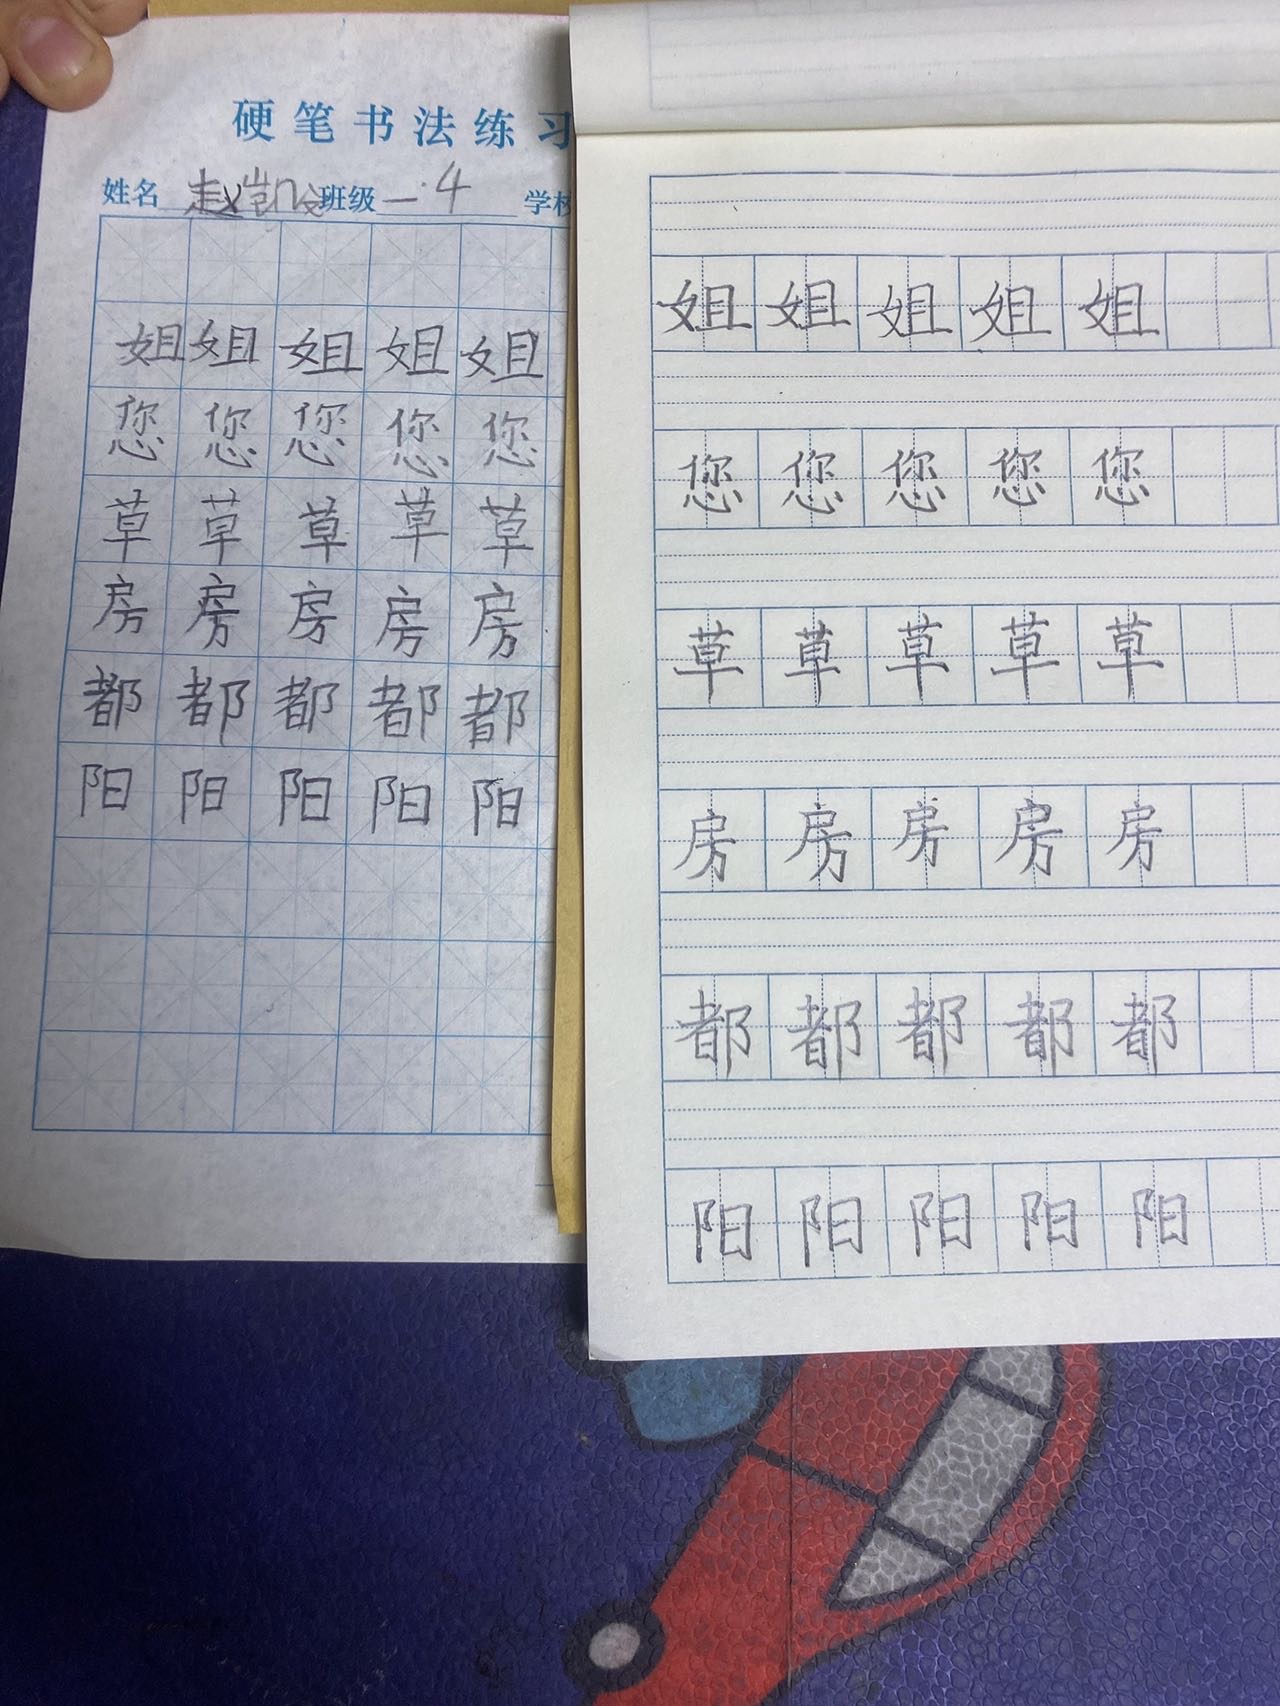 硬笔书法练习
姓名 赵凯 班级 一.4 学校
姐 姐 姐 姐 姐
您 您 您 您 您
草 草 草 草 草
房 房 房 房 房
都 都 都 都 都
阳 阳 阳 阳 阳
姐 姐 姐 姐 姐
您 您 您 您 您
草 草 草 草 草
房 房 房 房 房
都 都 都 都 都
阳 阳 阳 阳 阳